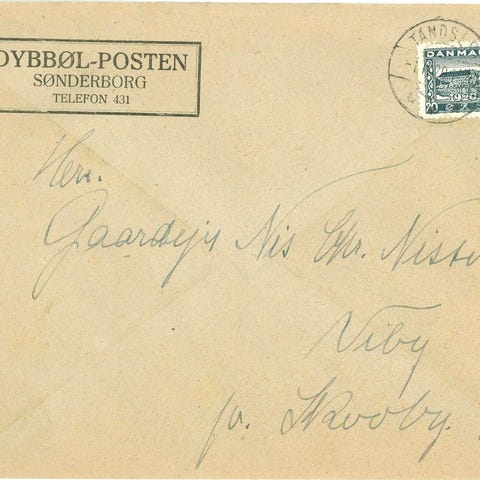 DYBBØL-POSTEN
SØNDERBORG
TELEFON 431
TANDSL
DANMA
1920
20 ØR
Herr.
Gaardejr Nis Chr. Nisse
Viby
pr. Skovby.